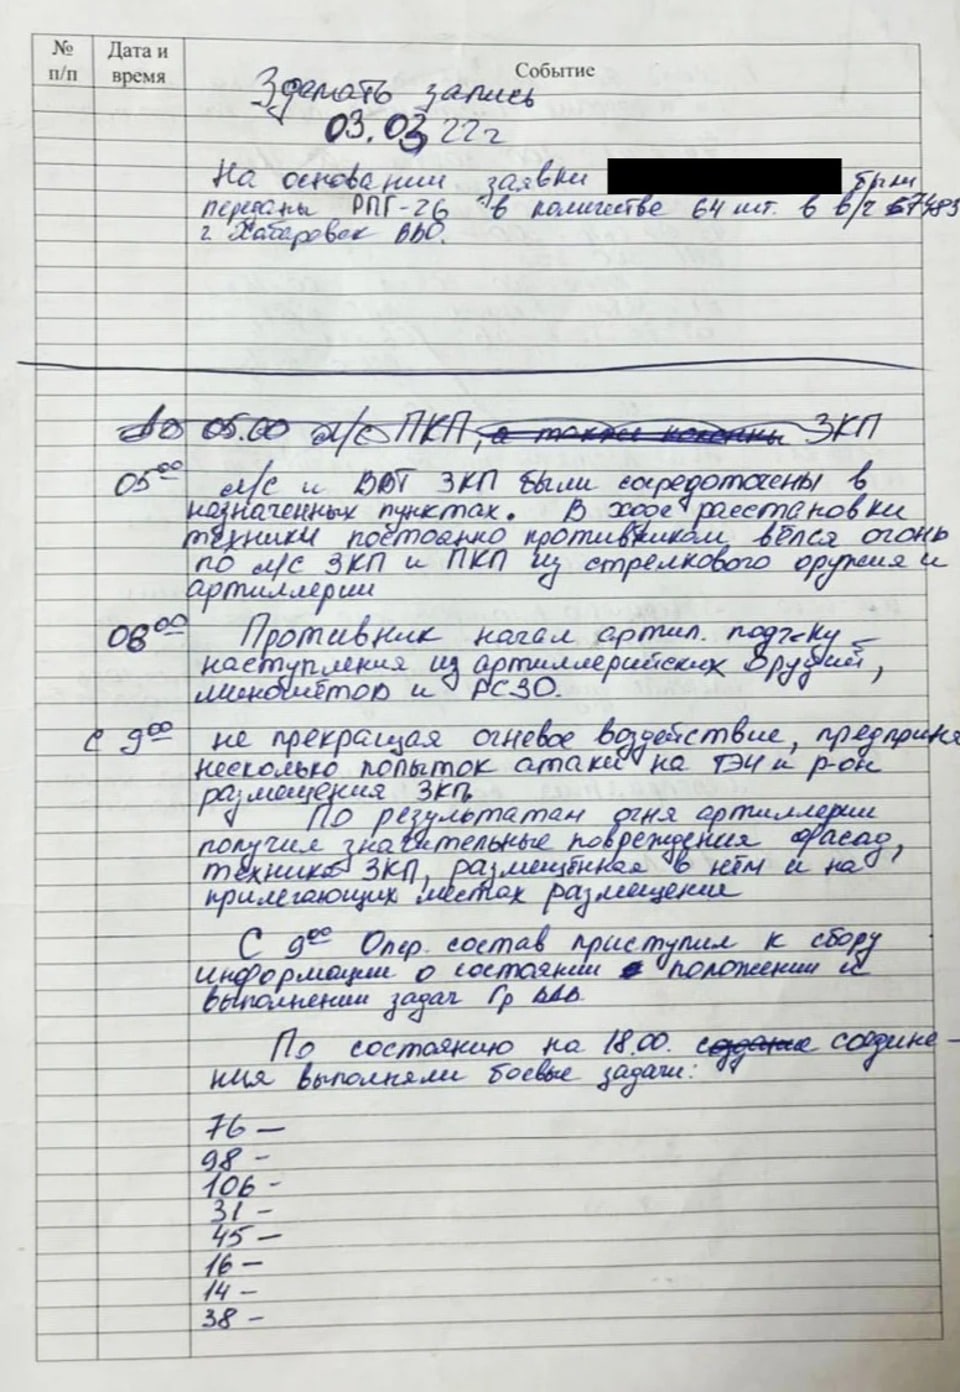 № п/п
Дата и время
Событие
Зделать запись
03.03 22 г
На основании заявки были
переданы РПГ-26 в количестве 64 шт. в в/ч
г. Хабаровск ВВО.
До 05.00 л/с ПКП, а также колонны ЗКП
05⁰⁰ л/с и ВВТ ЗКП были сосредоточены в
назначенных пунктах. В ходе расстановки
техники постоянно противником вёлся огонь
по л/с ЗКП и ПКП из стрелкового оружия и
артиллерии
08⁰⁰ Противник начал артил. подг-ку
наступления из артиллерийских орудий,
миномётов и РСЗО.
С 9⁰⁰ не прекращая огневое воздействие, предприня
несколько попыток атаки на ТЭЧ и р-он
размещения ЗКП.
По результатам огня артиллерии
получил значительные повреждения фасад,
техника ЗКП, размещённая в нём и на
прилегающих местах размещение
С 9⁰⁰ Опер. состав приступил к сбору
информации о состоянии положении и
выполнении задач Гр ВДВ.
По состоянию на 18.00. соедине-
ния выполняли боевые задачи:
76 –
98 –
106 –
31 –
45 –
16 –
14 –
38 –